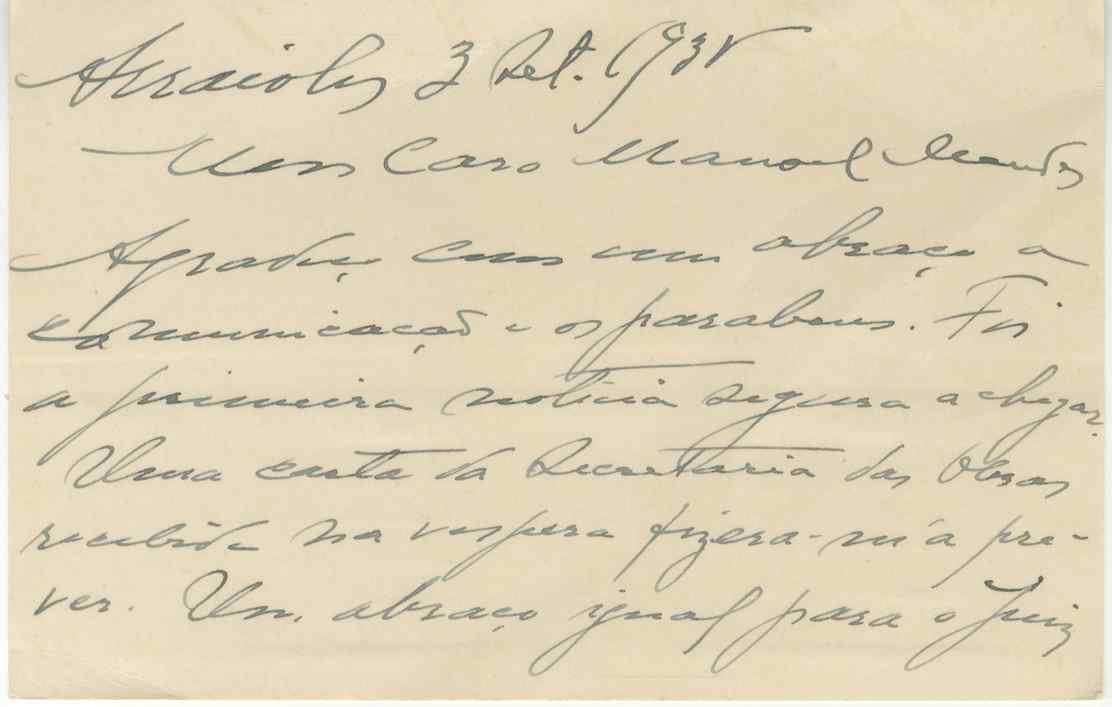 Arraiolos 3 Set. 193
Meu Caro Manoel Mendes
Agradeço com um abraço a
comunicação e os parabens. Foi
a primeira noticia segura a chegar.
Uma carta da Secretaria das Obras
recebida na vespera fizera-m'a pre-
ver. Um abraço igual para o Juiz